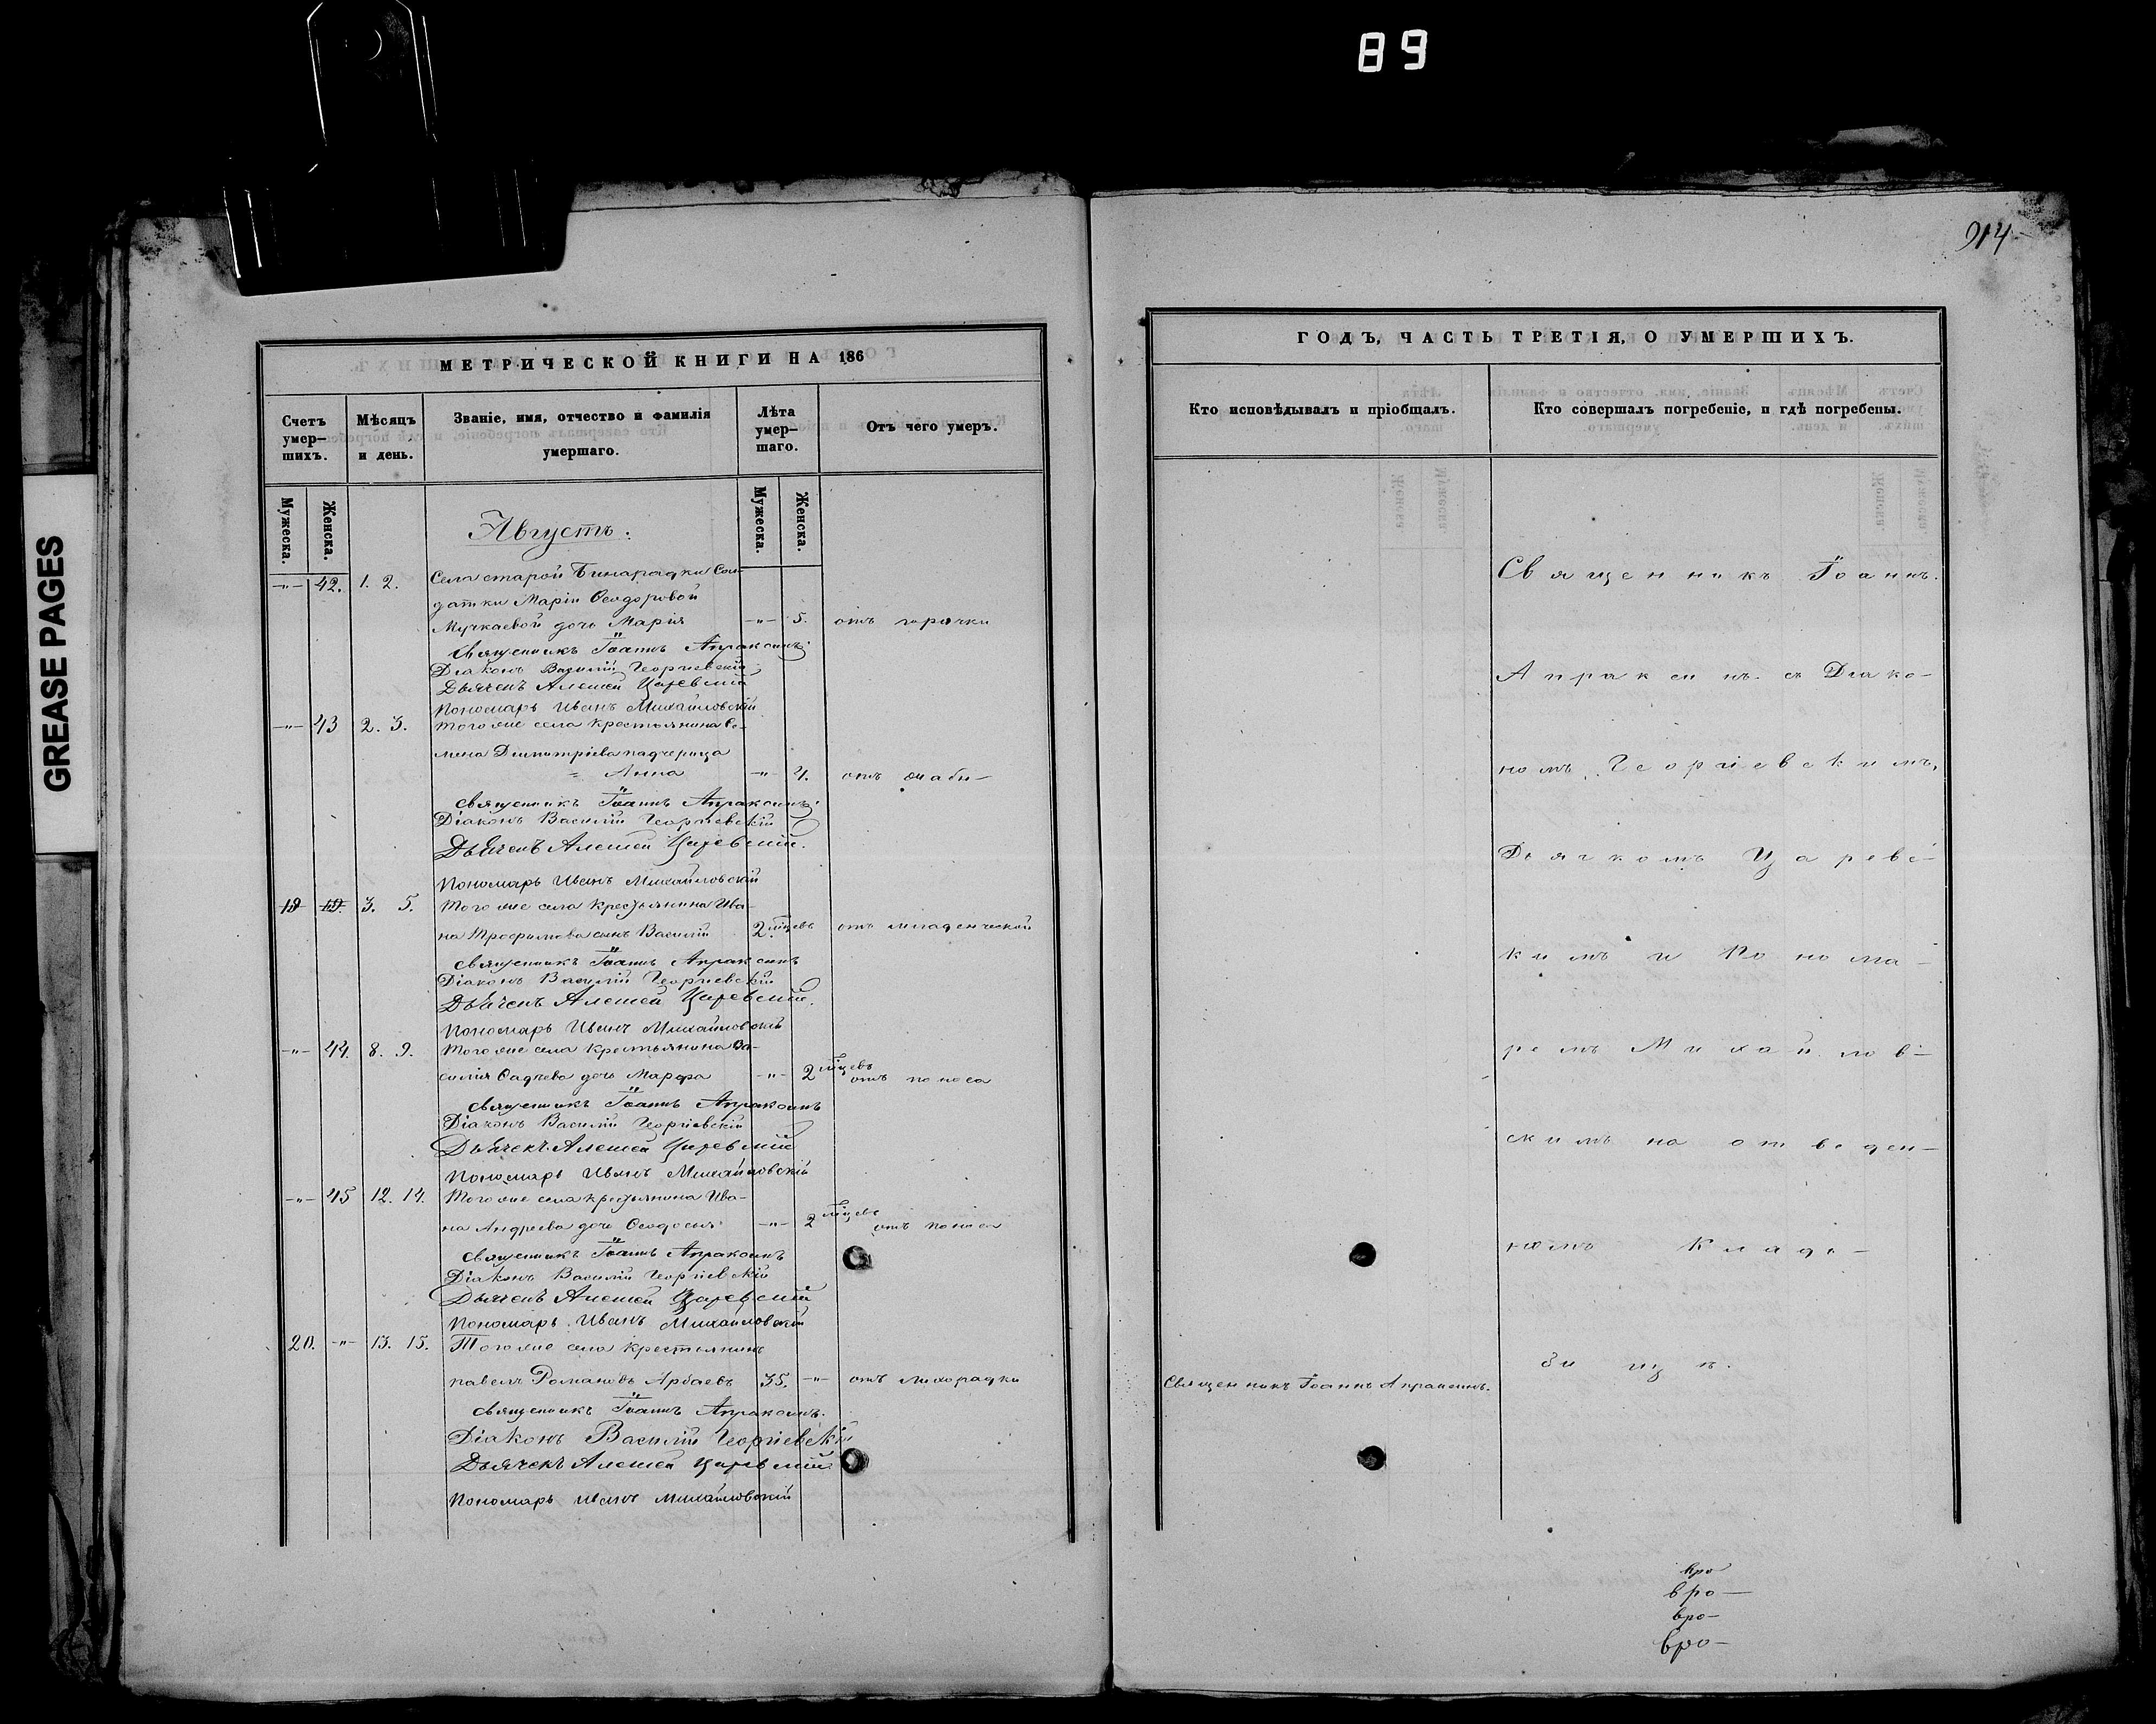 89
GREASE PAGES
914
МЕТРИЧЕСКОЙ КНИГИ НА 186
Счетъ умер-шихъ.
Мѣсяцъ и день.
Званіе, имя, отчество и фамилія умершаго.
Лѣта умер-шаго.
Отъ чего умеръ.
Мужеска.
Женска.
Мужеска.
Женска.
Августъ.
-"- 42. 1. 2. Села старой Бинарадки Сол-
датки Маріи Ѳеодоровой
Мучкаевой дочь Марія -"- 5. отъ горячки
Священникъ Іоаннъ Апраксинъ.
Діаконъ Василій Георгіевскій
Дьячекъ Алексей Царевскій
Пономарь Иванъ Михайловскій
-"- 43 2. 3. Того же села крестьянина Се-
мена Димитріева падчерица
Анна -"- 4. отъ
Священникъ Іоаннъ Апраксинъ.
Діаконъ Василій Георгіевскій
Дьячекъ Алексей Царевскій.
Пономарь Иванъ Михайловскій
19 3. 5. Того же села крестьянина Ива-
на Трофимова сынъ Василій 2 мѣцевъ отъ младенческой
Священникъ Іоаннъ Апраксинъ
Діаконъ Василій Георгіевскій
Дьячекъ Алексей Царевскій.
Пономарь Иванъ Михайловскій
-"- 44. 8. 9. Того же села крестьянина Ва-
силія дочь Марфа -"- 2 мѣцевъ отъ поноса
Священникъ Іоаннъ Апраксинъ
Діаконъ Василій Георгіевскій
Дьячекъ Алексей Царевскій
Пономарь Иванъ Михайловскій
-"- 45 12. 14. Того же села крестьянина Ива-
на Андреева дочь Ѳеодосія -"- 2 мѣцевъ отъ поноса
Священникъ Іоаннъ Апраксинъ
Діаконъ Василій Георгіевскій
Дьячекъ Алексей Царевскій
Пономарь Иванъ Михайловскій
20. -"- 13. 15. Того же села крестьянинъ
Павелъ Романовъ Арбаевъ 35. -"- отъ лихорадки
Священникъ Іоаннъ Апраксинъ.
Діаконъ Василій Георгіевскій
Дьячекъ Алексей Царевскій
Пономарь Иванъ Михайловскій
ГОДЪ, ЧАСТЬ ТРЕТІЯ, О УМЕРШИХЪ.
Кто исповѣдывалъ и пріобщалъ.
Кто совершалъ погребеніе, и гдѣ погребены.
Священникъ Іоаннъ.
Апраксинъ. съ Діако-
номъ Георгіевскимъ,
Дьячкомъ Царевс-
кимъ и Понома-
ремъ Михайлов-
скимъ на отведен-
номъ Кладь-
бищѣ.
Священникъ Іоаннъ Апраксинъ.
вро
вро-
вро-
вро-